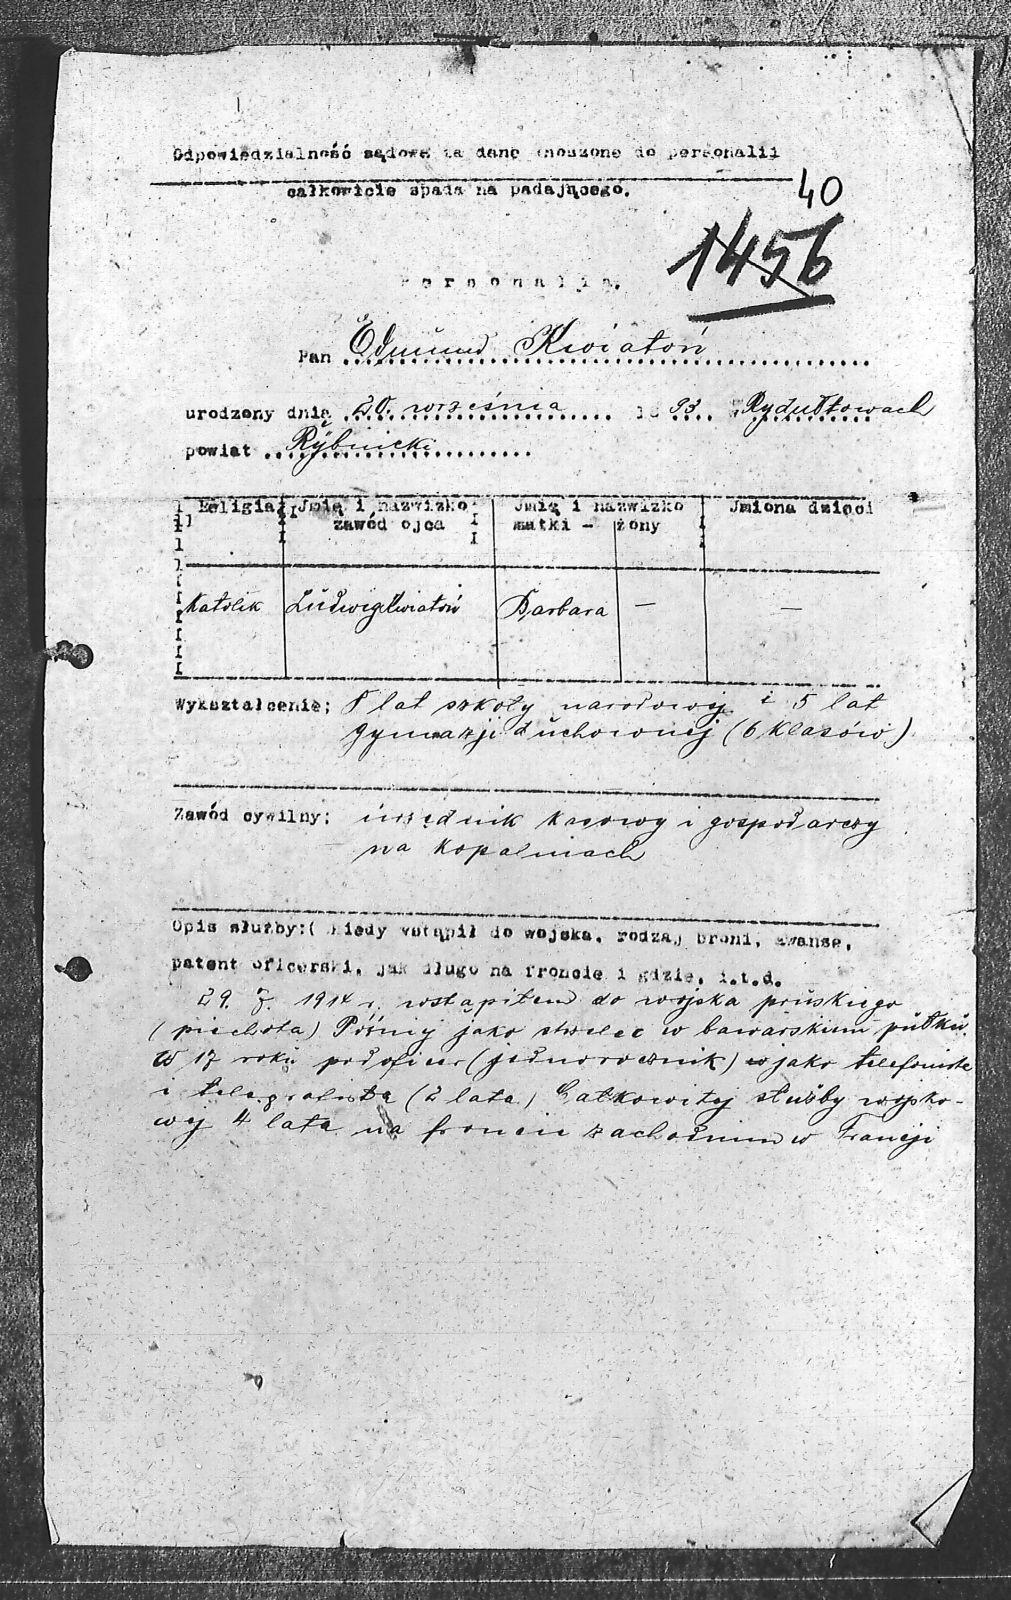 Odpowiedzialność sądowa za dane wnoszone do personalii
całkowicie spada na padającego.
40
1456
Personalia.
Pan Edmund Kwiatoń
urodzony dnia 20. września 1893 w Rydułtowach
powiat Rybnicki
Religia Jmię i nazwizko Jmię i nazwizko Jmiona dzieci
zawód ojca matki - żony
Katolik Ludwig Kwiatoń Barbara — —
Wykształcenie: 8 lat szkoły narodowej i 5 lat
gymnazji duchownej (6 klasów)
Zawód cywilny: urzędnik kasowy i gospodarczy
na kopalniach
Opis służby:( kiedy wstąpił do wojska, rodzaj broni, awanse,
patent oficerski, jak długo na froncie i gdzie, i.t.d.
29. 7. 1914 r. wstąpiłem do wojska pruskiego
(piechota) Póżnij jako strzelec w bawarskim pułku.
W 17 roku podoficer (jednorocznik) jako telefonista
i telegrafista (2 lata) Całkowitej służby wojsko-
wej 4 lata na froncie zachodnim w Francji